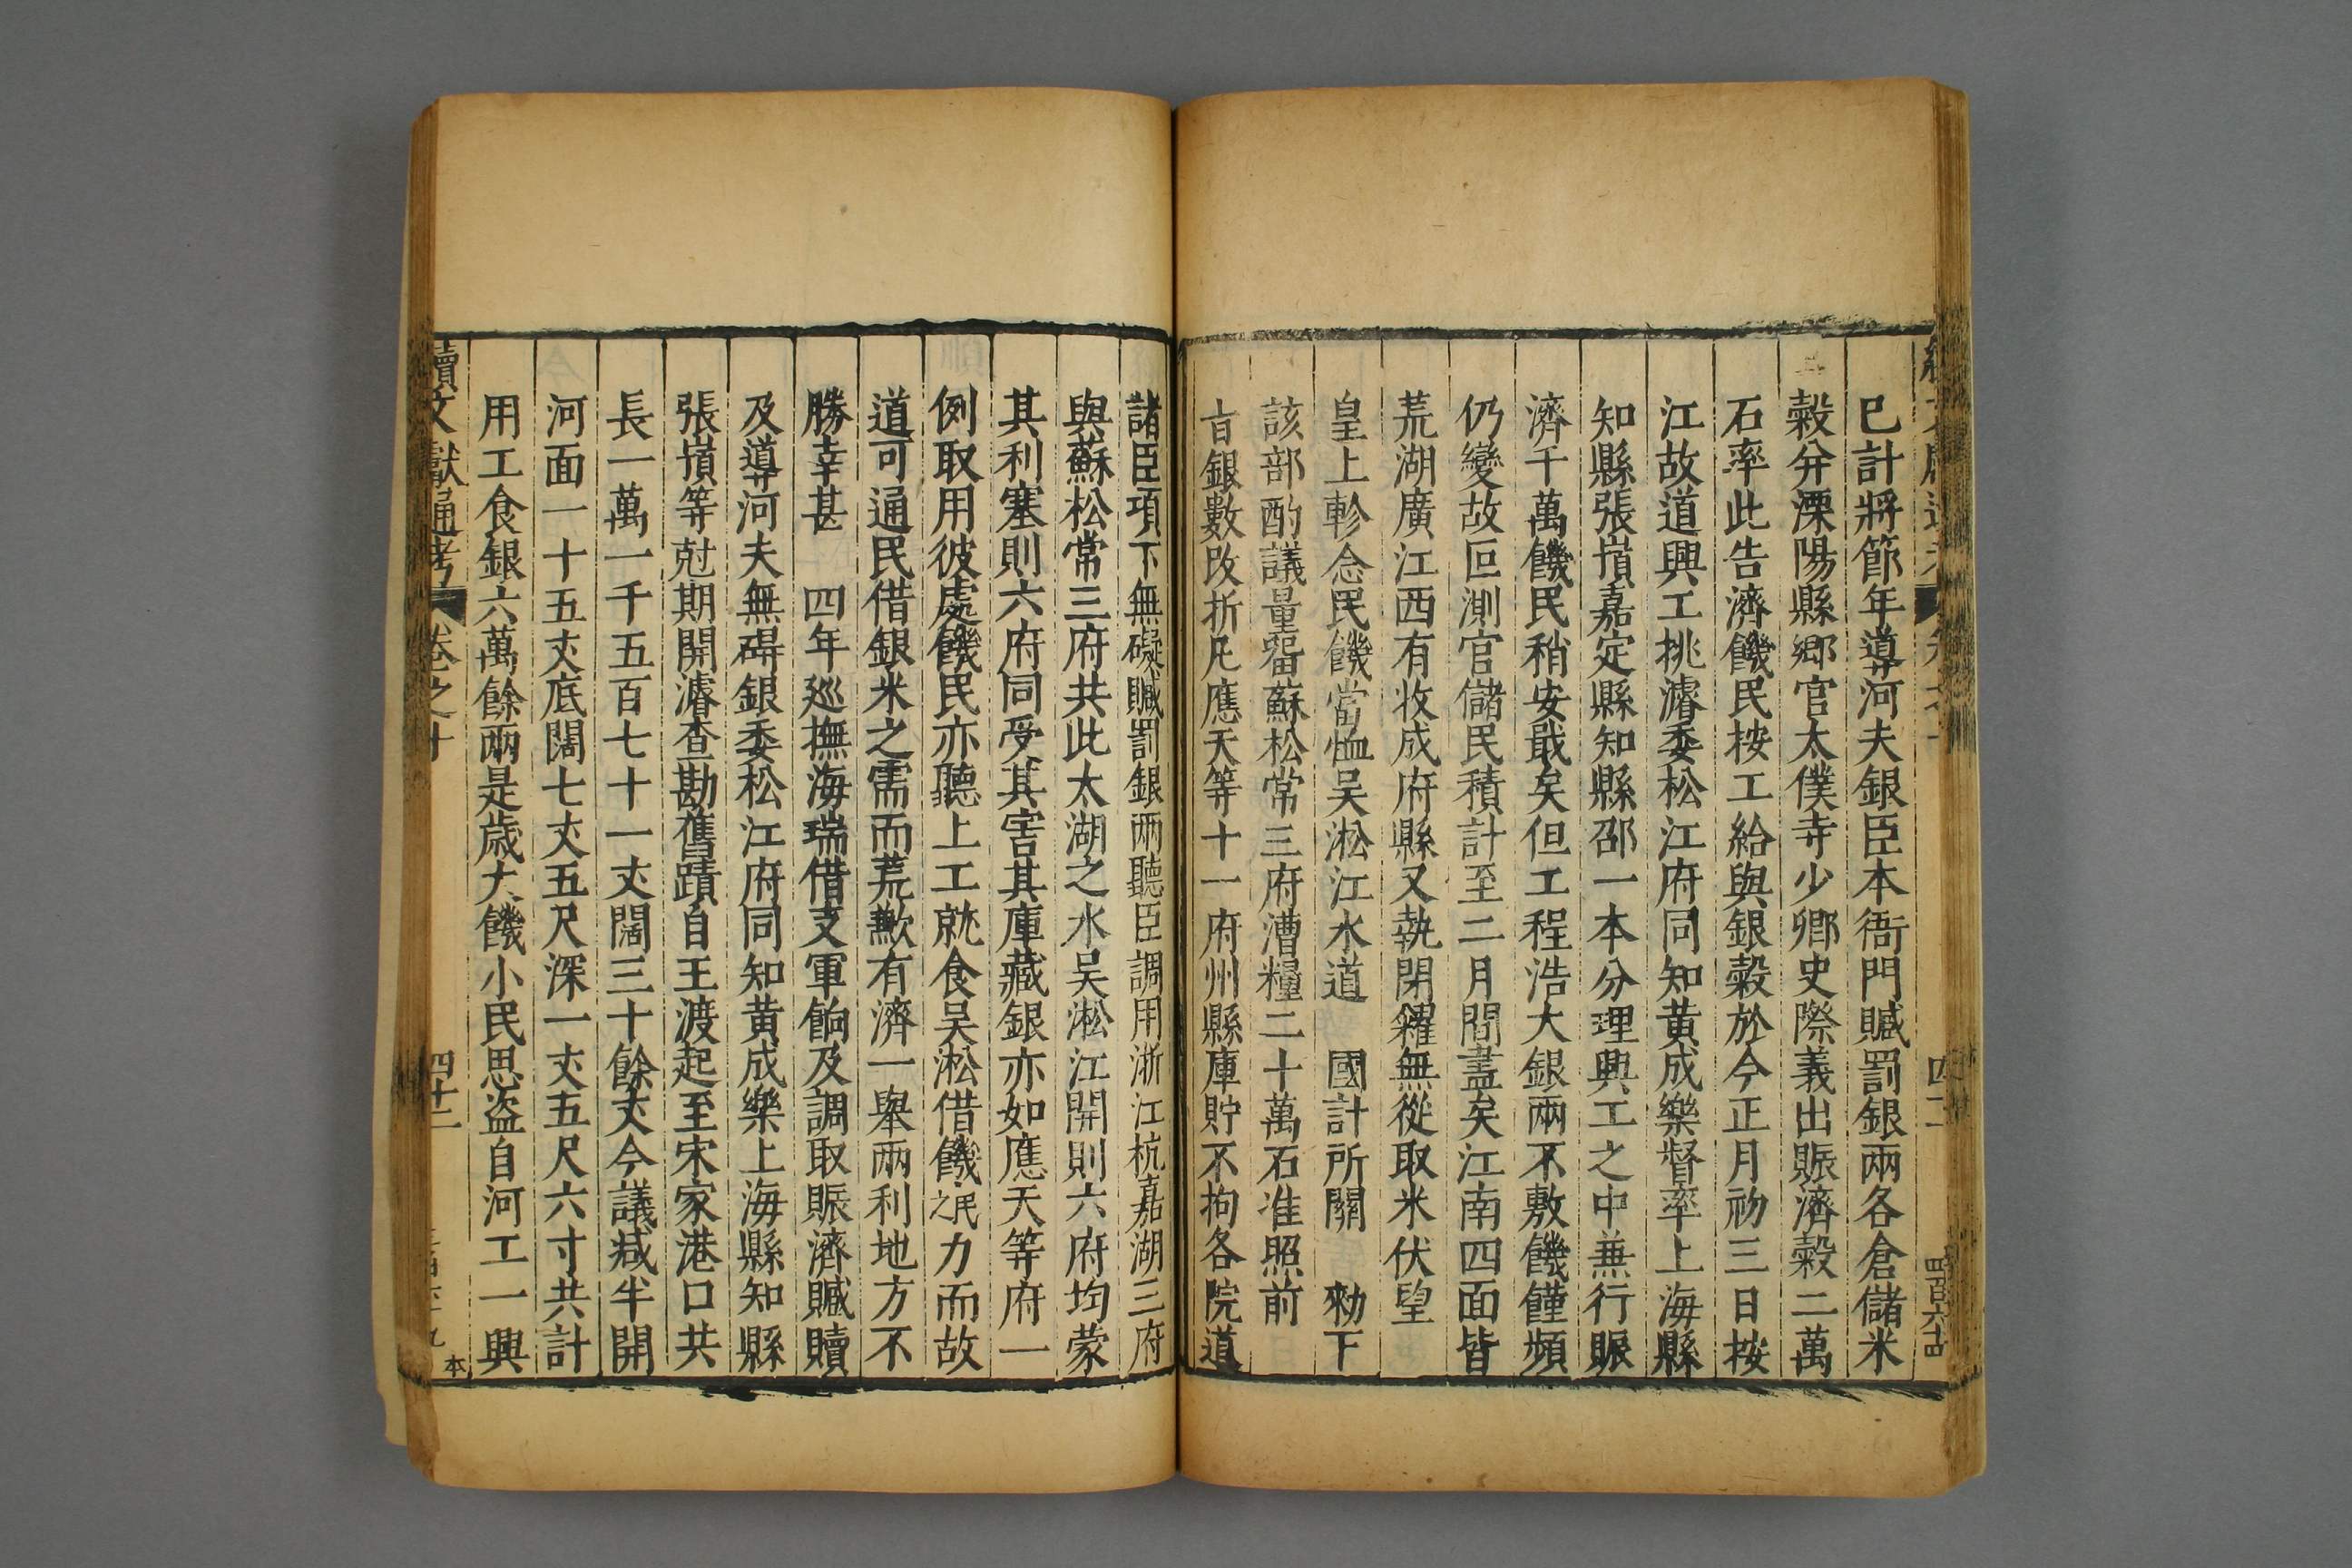 已計將節年導河夫銀臣本衙門贓罰銀兩各倉儲米
穀分溧陽縣鄉官太僕寺少卿史際義出賑濟穀二萬
石率此告濟饑民按工給與銀穀於今正月初三日按
江故道興工挑濬委松江府同知黃成樂督率上海縣
知縣張㠉嘉定縣知縣邵一本分理興工之中兼行賑
濟千萬饑民稍安戢矣但工程浩大銀兩不敷饑饉頻
仍變故叵測官儲民積計至二月間盡矣江南四面皆
荒湖廣江西有收成府縣又執閉糴無從取米伏望
皇上軫念民饑當恤吳淞江水道 國計所關 勑下
該部酌議量畱蘇松常三府漕糧二十萬石准照前
旨銀數改折凡應天等十一府州縣庫貯不拘各院道
諸臣項下無礙贓罰銀兩聽臣調用浙江杭嘉湖三府
與蘇松常三府共此太湖之水吳淞江開則六府均蒙
其利塞則六府同受其害其庫藏銀亦如應天等府一
例取用彼處饑民亦聽上工就食吳淞借饑民之力而故
道可通民借銀米之需而荒歉有濟一舉兩利地方不
勝幸甚 四年廵撫海瑞借支軍餉及調取賑濟贓贖
及導河夫無碍銀委松江府同知黃成樂上海縣知縣
張㠉等尅期開濬查勘舊蹟自王渡起至宋家港口共
長一萬一千五百七十一丈闊三十餘丈今議減半開
河面一十五丈底闊七丈五尺深一丈五尺六寸共計
用工食銀六萬餘兩是歲大饑小民思盜自河工一興
續文獻通考 卷之十 四十二 本